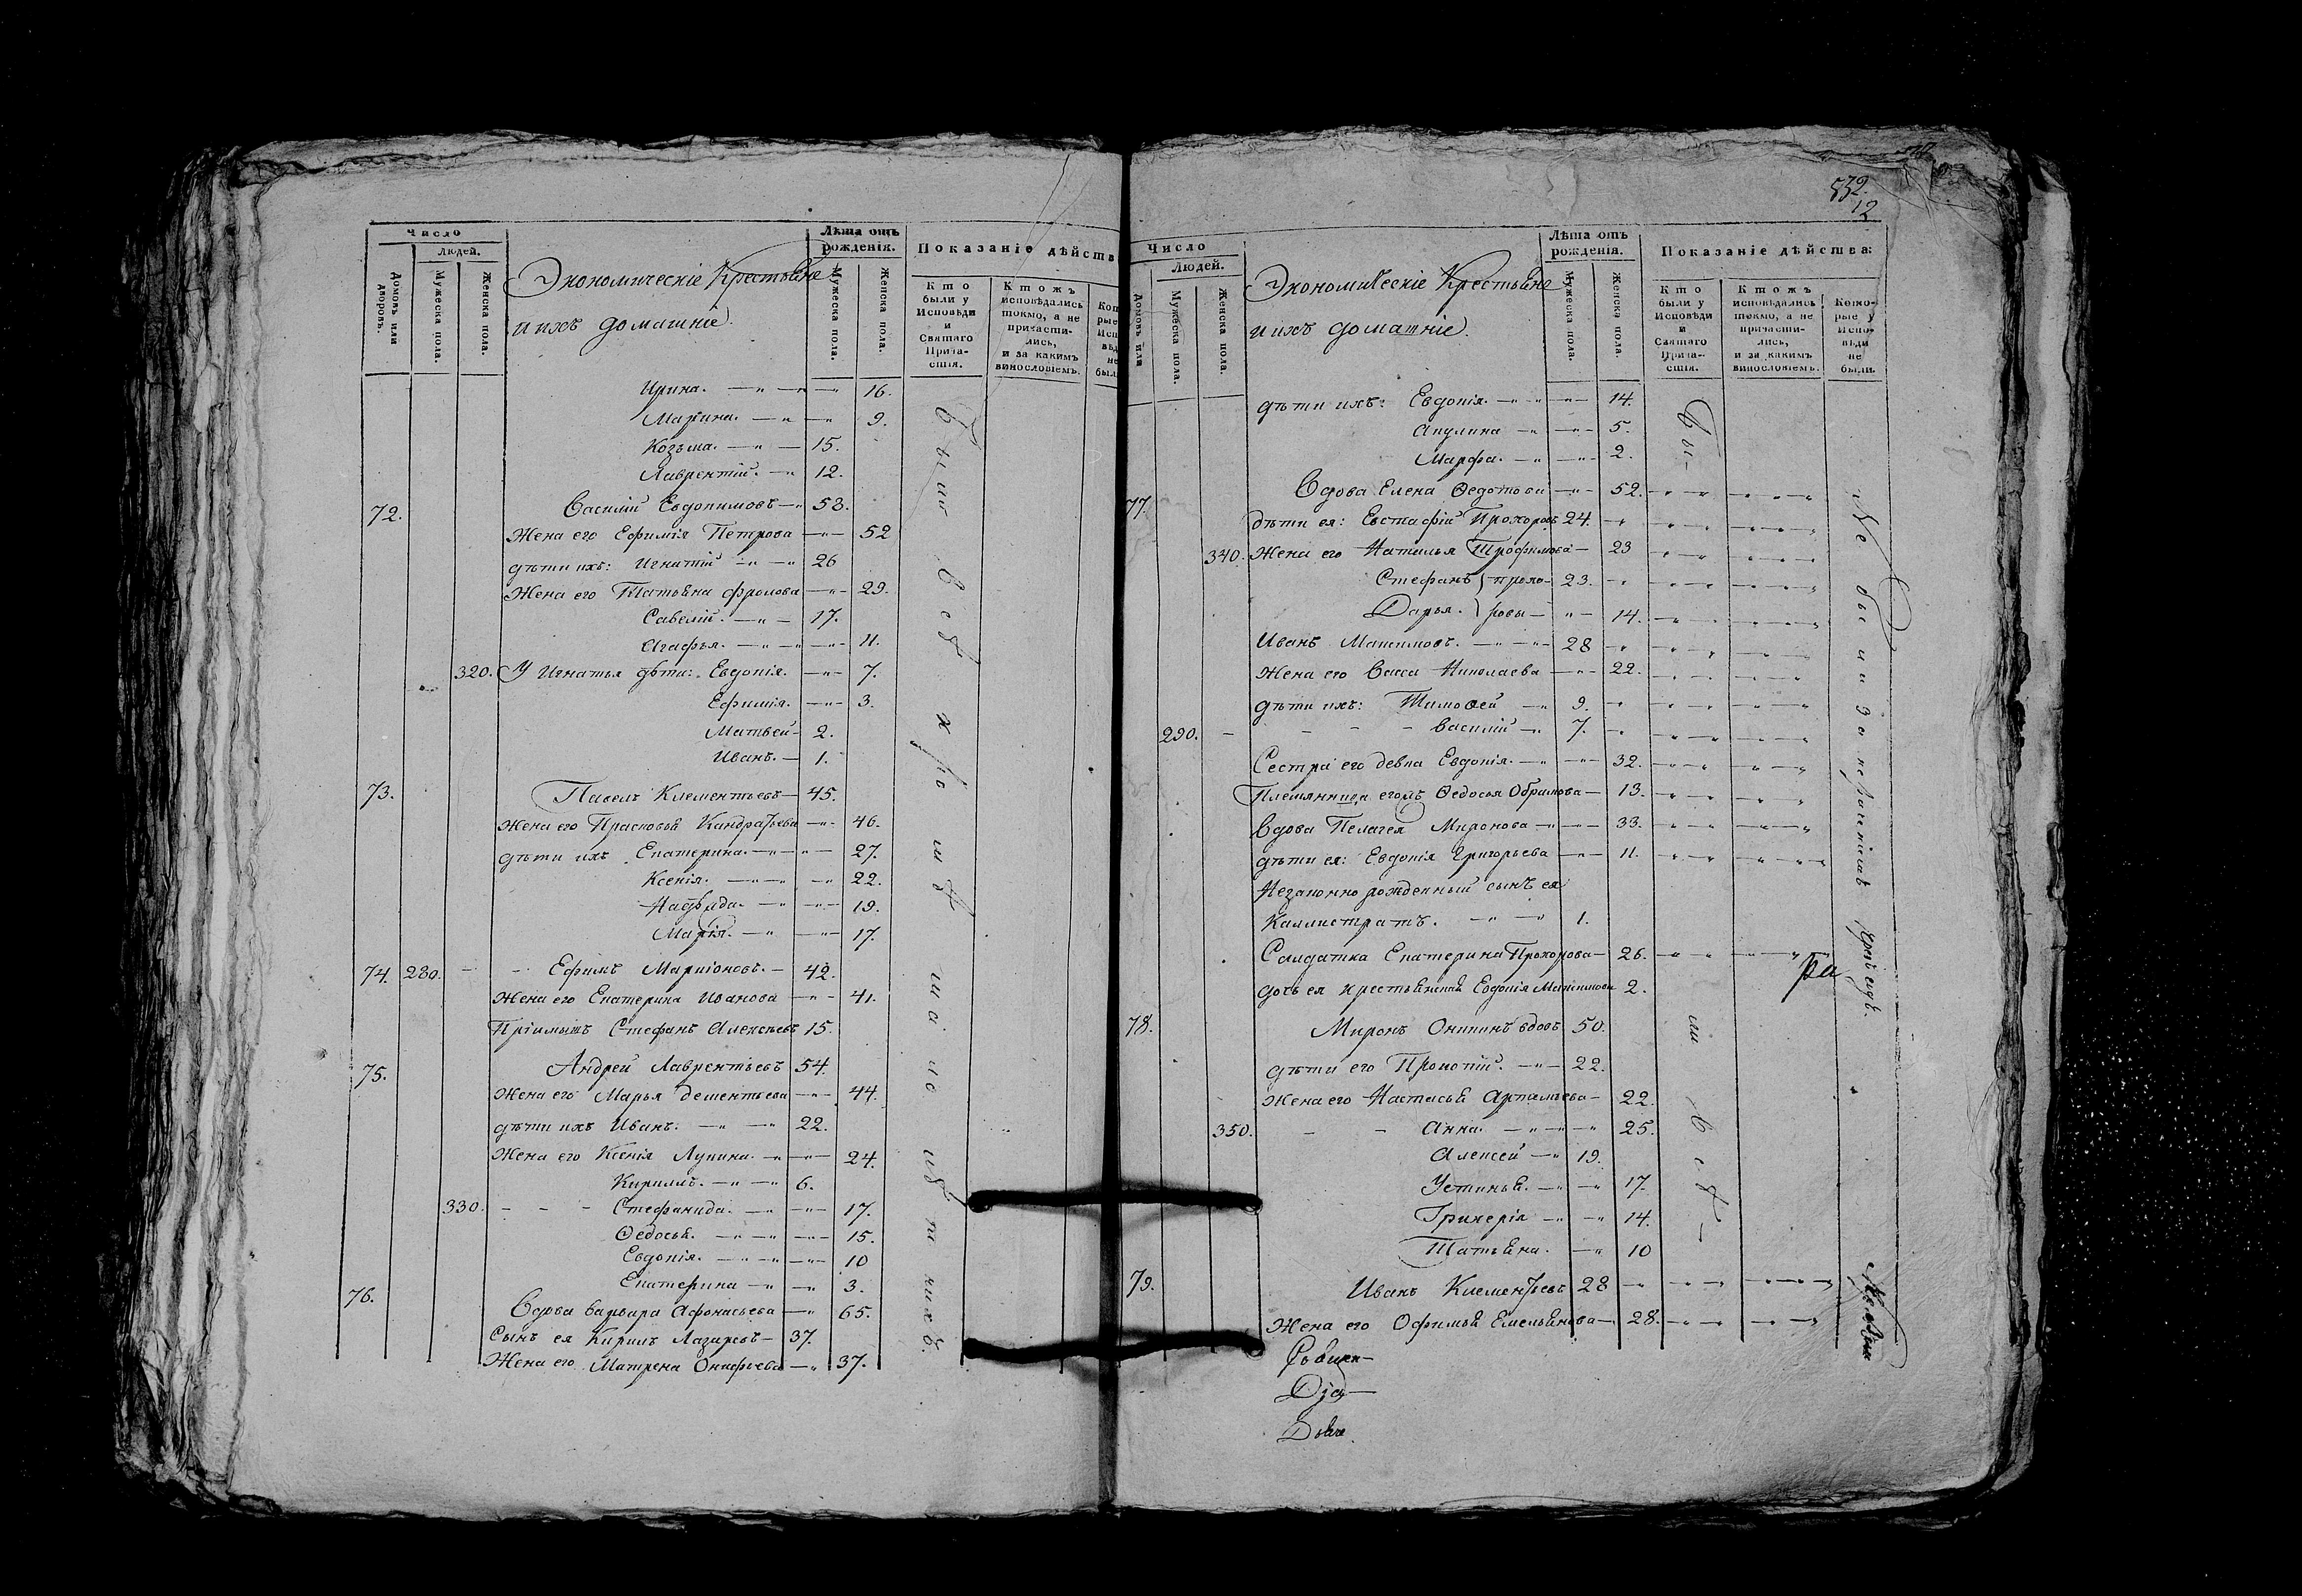 Число
Людей.
Домовъ или дворовъ.
Мужеска пола.
Женска пола.
Экономическіе Крестьяне
и ихъ домашніе.
Лѣта отъ рожденія.
Мужеска пола.
Женска пола.
Показаніе дѣйств
Кто были у Исповѣди и Святаго Причастія.
Ктожъ исповѣдались токмо, а не причастились, и за какимъ винословіемъ.
Ирина. 16.
Марина. 9.
Козьма. 15.
Лаврентій. 12.
72. Василій Евдокимовъ 53.
Жена его Ефимія Петрова 52
дѣти ихъ: Игнатій 26
Жена его Татьяна Фролова 29.
Савелій. 17.
Агафья. 11.
320. У Игнатья дѣти: Евдокія. 7.
Ефимія. 3.
Матвей 2.
Иванъ. 1.
73. Павелъ Клементьевъ 45.
Жена его Прасковья Кандратьева 46.
дѣти ихъ Екатерина. 27.
Ксенія. 22.
Надежда. 19.
Марія. 17.
74. 280. Ефимъ Маркіоновъ. 42.
Жена его Екатерина Иванова 41.
Пріимышъ Стефанъ Алексѣевъ 15.
75. Андрей Лаврентьевъ 54.
Жена его Марья Дементьева 44.
дѣти ихъ Иванъ. 22.
Жена его Ксенія Лукина. 24.
Кирилъ. 6.
330. Стефанида. 17.
Ѳедосья. 15.
Евдокія. 10
Екатерина 3.
76. Вдова Варвара Афонасьева 65.
Сынъ ея Кирилъ Лазаревъ 37.
Жена его Матрена Онафьева 37.
532.
12
Число
Людей.
Домовъ или
Мужеска пола.
Женска пола.
Экономическіе Крестьяне
и ихъ домашніе.
Лѣта отъ рожденія.
Мужеска пола.
Женска пола.
Показаніе дѣйства:
Кто были у Исповѣди и Святаго Причастія.
Ктожъ исповѣдались токмо, а не причастились, и за какимъ винословіемъ.
Которые у Исповѣди не были.
дѣти ихъ: Евдокія. 14.
Акулина 5.
Марфа. 2.
77. Вдова Елена Ѳедотова 52.
дѣти ея: Евстафій Прохоровъ 24.
340. Жена его Наталья Трофимова 23
Стефанъ прохо- 23.
Дарья. ровы 14.
Иванъ Максимовъ. 28
Жена его Васса Николаева 22.
дѣти ихъ: Тимоѳей 9.
290. Василій 7.
Сестра его девка Евдокія. 32.
Племянница его Ѳедосья Обрамова 13.
Вдова Пелагея Миронова 33.
дѣти ея: Евдокія Григорьева 11.
Незаконно рожденный сынъ ея
Каллистратъ. 1.
Салдатка Екатерина Прохорова 26.
дочь ея крестьянская Евдокія Максимова 2.
78. Миронъ Оникинъ вдовъ 50.
дѣти его Прокопій. 22.
Жена его Настасья Артемьева 22.
350. Анна. 25.
Алексей 19.
Устинья. 17.
Гликерія 14.
Татьяна. 10
79. Иванъ Клементьевъ 28
Жена его Офимья Емельянова 28.